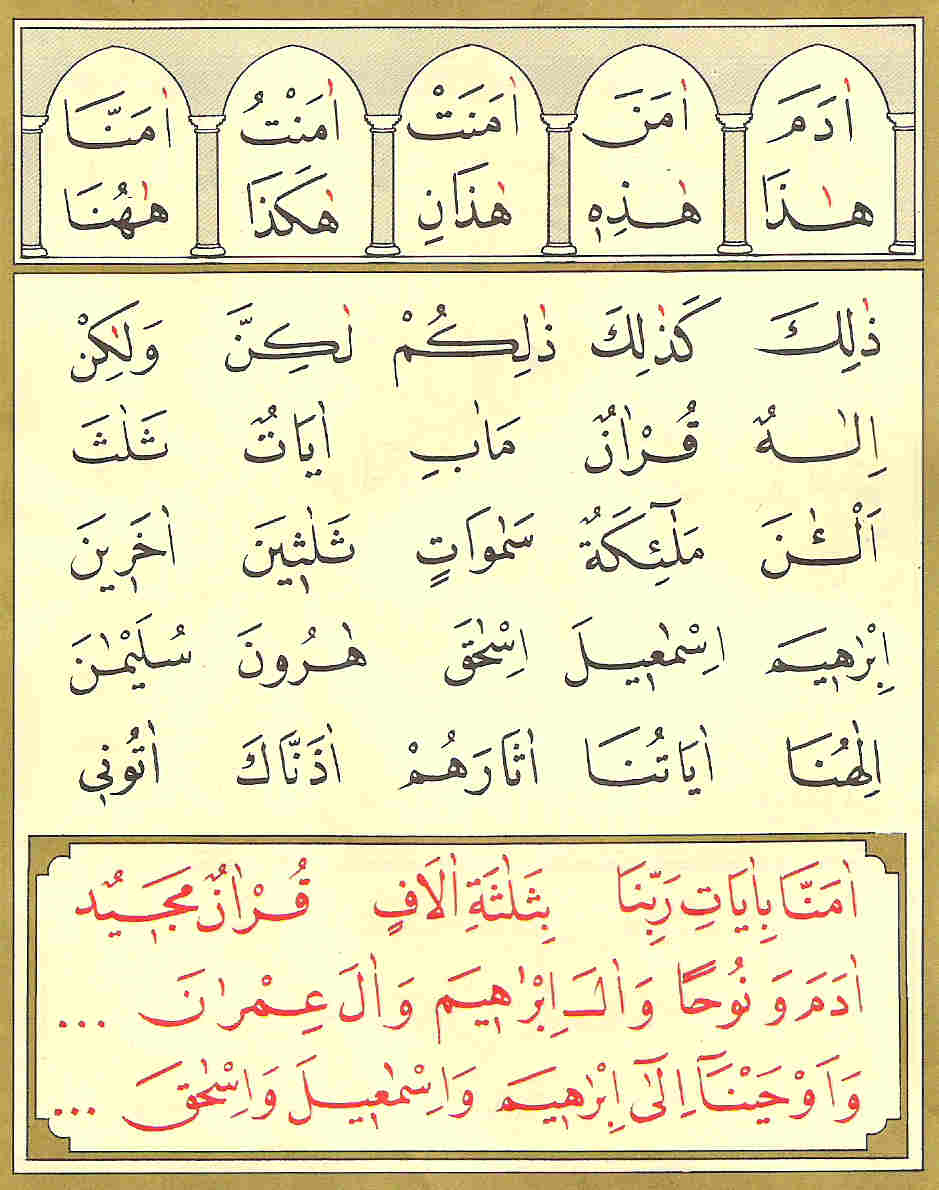 اٰدَمَ اٰمَنَ اٰمَنَتْ اٰمَنْتُ اٰمَنَّا
هٰذَا هٰذِهٖ هٰذَانِ هٰكَذَا هٰهُنَا
ذٰلِكَ كَذٰلِكَ ذٰلِكُمْ لٰكِنَّ وَلٰكِنْ
اِلٰهٌ قُرْاٰنٌ مَاٰبِ اٰيَاتٌ ثَلٰثَ
اَلْـٰٔنَ مَلٰٓئِكَةٌ سَمٰوَاتٍ ثَلٰثٖينَ اٰخَرٖينَ
اِبْرٰهٖيمَ اِسْمٰعٖيلَ اِسْحٰقَ هٰرُونَ سُلَيْمٰنَ
اِلٰهُنَا اٰيَاتُنَا اٰثَارَهُمْ اٰذَنَّاكَ اٰتُونٖى
اٰمَنَّا بِاٰيَاتِ رَبِّنَا بِثَلٰثَةِ اٰلَافٍ قُرْاٰنٌ مَجٖيدٌ
اٰدَمَ وَ نُوحًا وَ اٰلَ اِبْرٰهٖيمَ وَ اٰلَ عِمْرٰنَ ...
وَ اَوْحَيْنَٓا اِلٰٓى اِبْرٰهٖيمَ وَ اِسْمٰعٖيلَ وَ اِسْحٰقَ ...